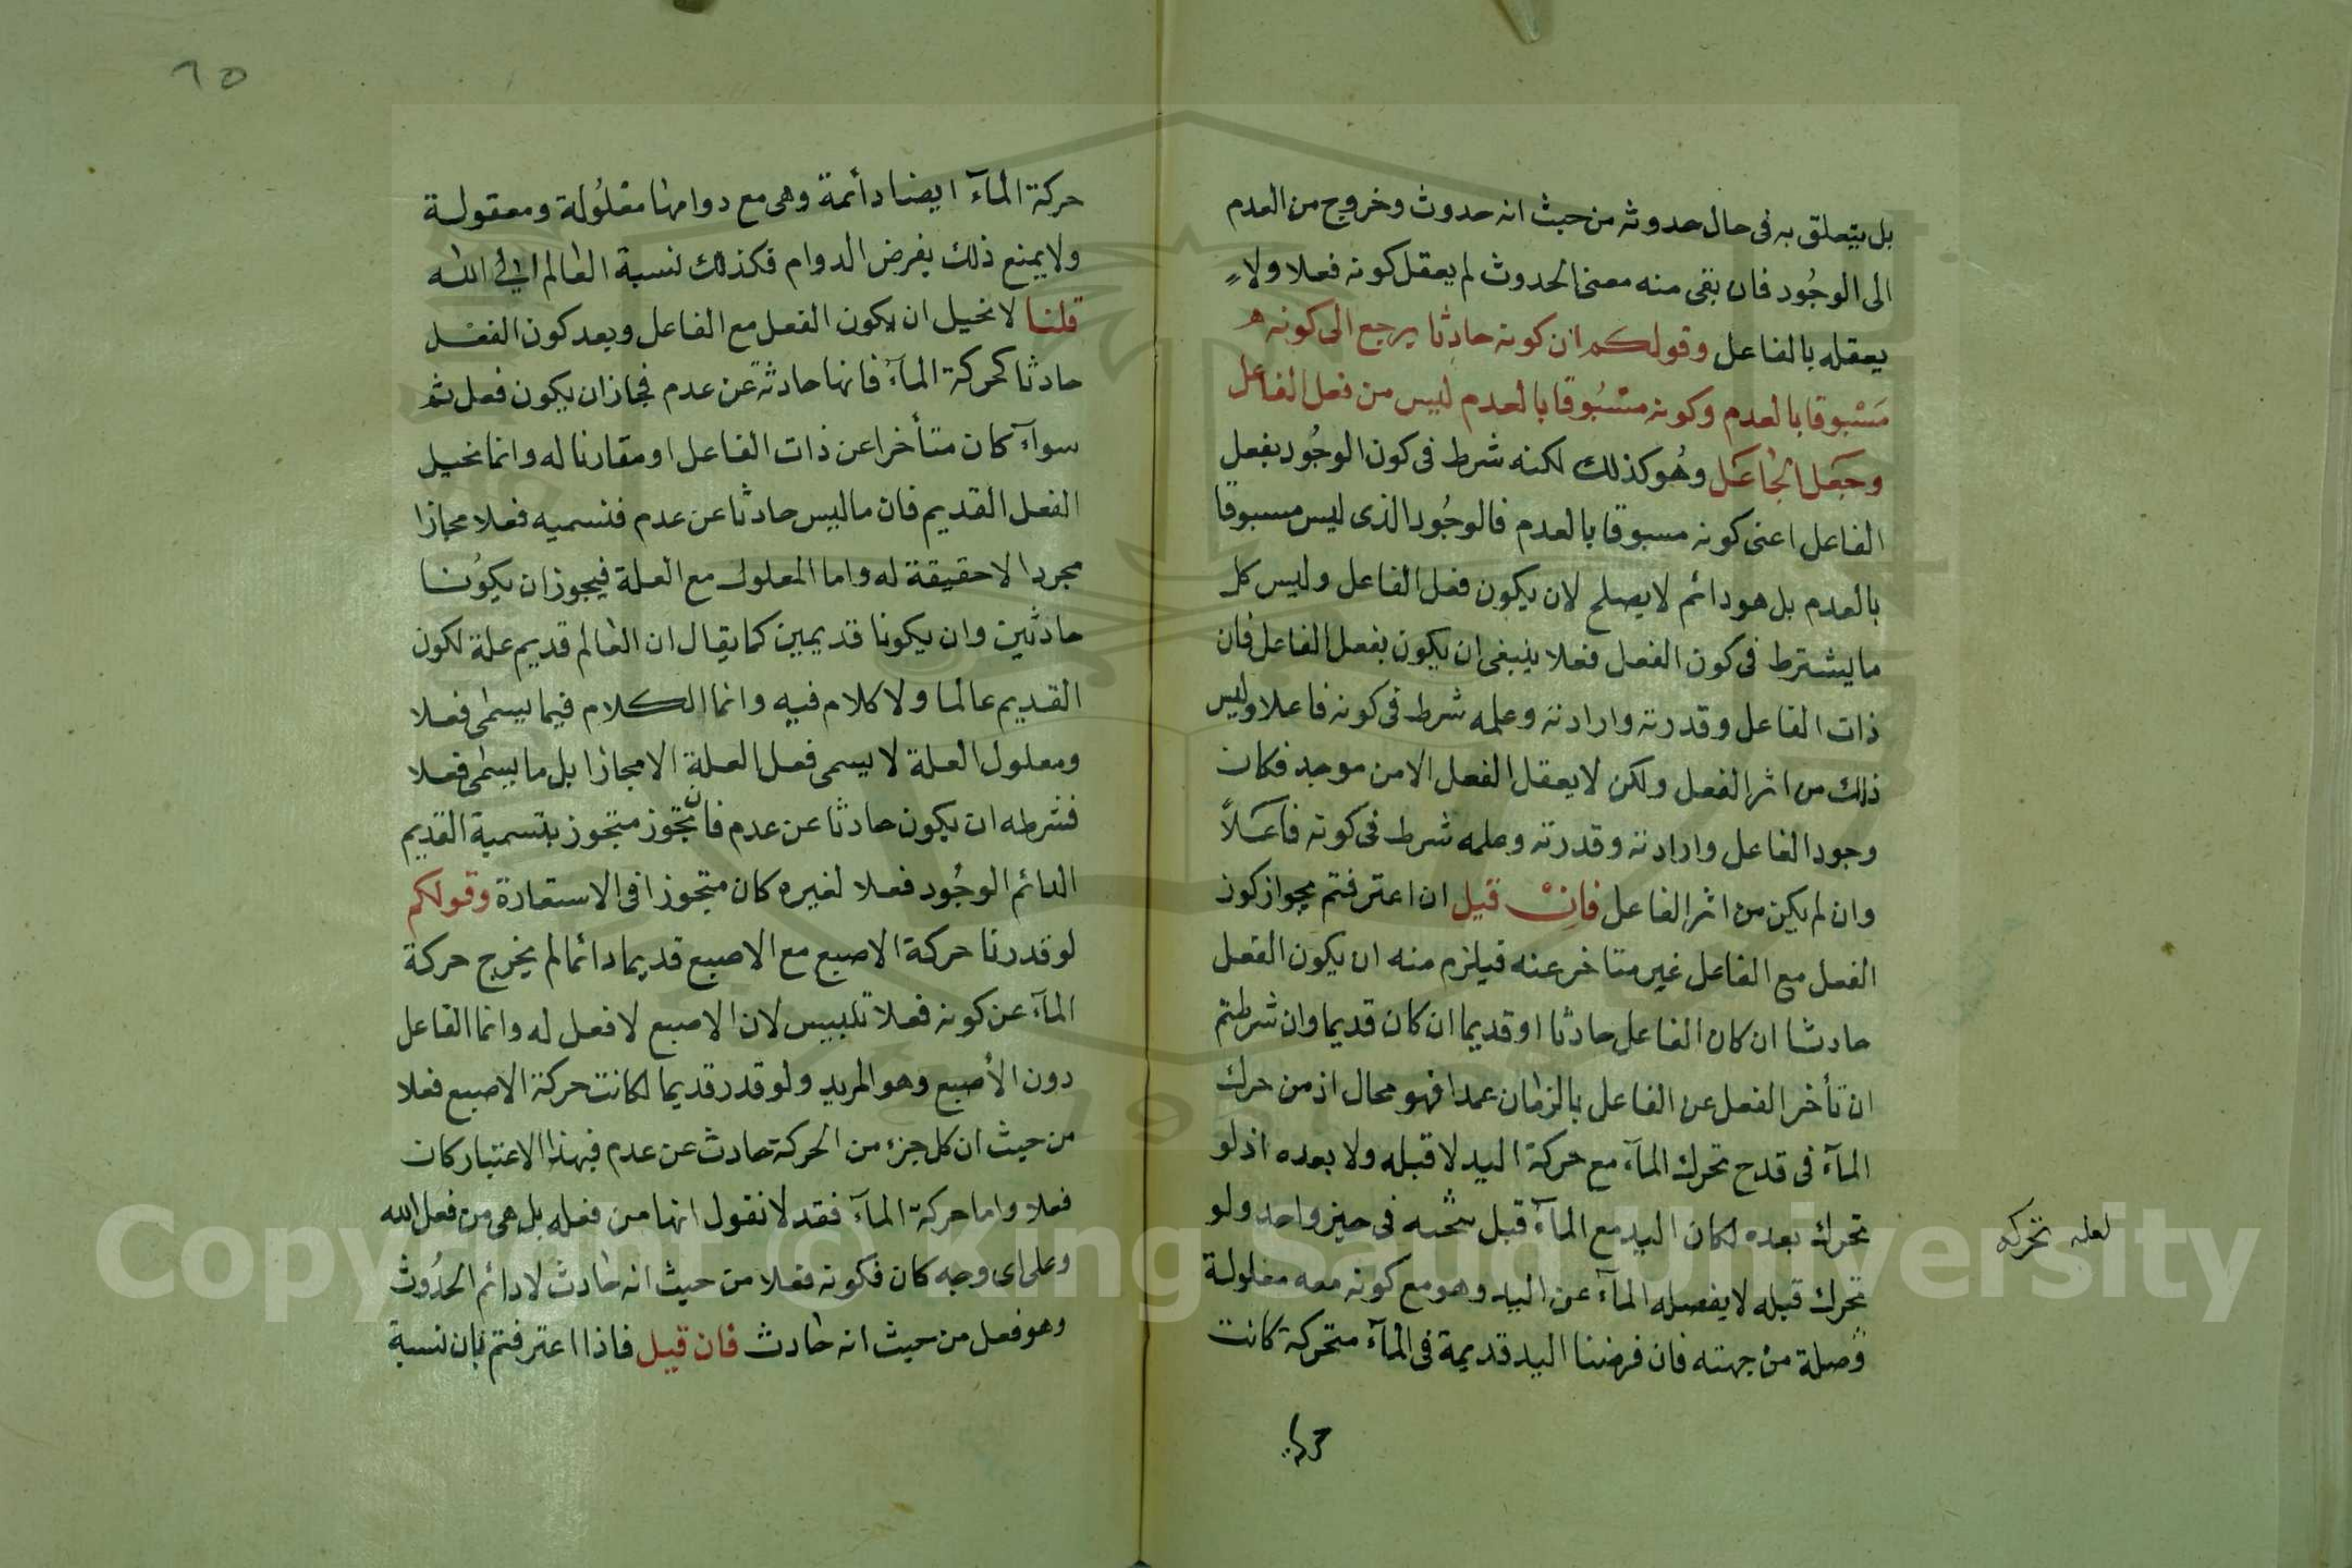 بل يتعلق به فى حال حدوثه من حيث انه حدوث وخروج من العدم
الى الوجُود فان بقى منه معنى الحدوث لم يعقل كونه فعلا ولا
يعقله بالفاعل وقولكم ان كونه حادِثا يرجع الى كونه
مَسْبوقا بالعدم وكونه مسْبُوقا بالعدم ليس من فعل الفاعل
وجَعَل الجَاعَل وهُو كذلك لكنه شرط فى كون الوجُود بفعل
الفاعل اعنى كونه مسبوقا بالعدم فالوجُود الذى ليس مسبوقا
بالعدم بل هو دائم لا يصلح لان يكون فعل الفاعل وليس كل
ما يشترط فى كون الفعل فعلا ينبغى ان يكون بفعل الفاعل فان
ذات الفاعل وقدرته وارادته وعلمه شرط فى كونه فاعلا وليس
ذلك من اثر الفعل ولكن لا يعقل الفعل الا من موجد فكان
وجود الفاعل وارادته وقدرته وعلمه شرط فى كونه فاعَلاً
وان لم يكن من اثر الفاعل فانْ قيل ان اعترفتم بجواز كون
الفعل مع الفاعل غير متاخر عنه فيلزم منه ان يكون الفعل
حادثا ان كان الفاعل حادثا او قديما ان كان قديما وان شرطتم
ان تأخر الفعل عن الفاعل بالزمان عمدا فهو محال اذ من حرك
المآء فى قدح تحرك المآء مع حركة اليد لا قبله ولا بعده اذ لو
تحرك بعده لكان اليد مع المآء قبل فى حيز واحد ولو
تحرك قبله لا يفصله المآء عن اليد وهو مع كونه معه معلولة
وصلة من جهته فان فرضنا اليد قديمة فى المآء متحركة كانت
لعله تحركه
٦٥
حركة المآء ايضا دائمة وهى مع دوامها معْلُولة ومعقولة
ولا يمنع ذلك بفرض الدوام فكذلك نسبة العالم الى الله
قلنا لا نحيل ان يكون الفعل مع الفاعل وبعد كون الفعل
حادثا كحركة المآء فانها حادثة عن عدم فجاز ان يكون فعل ثم
سوآء كان متأخرا عن ذات الفاعل او مقارنا له وانما نحيل
الفعل القديم فان ما ليس حادثا عن عدم فنسميه فعلا مجازا
مجردا لا حقيقة له واما المعلول مع العلة فيجوز ان يكوُنا
حادثين وان يكونا قديمين كما يقال ان العالم قديم علة لكون
القديم عالما ولا كلام فيه وانما الكلام فيما يسمى فعلا
ومعلول العلة لا يسمى فعل العلة الا مجازا بل ما يسمى فعلا
فشرطه ان يكون حادثا عن عدم فان تجوز متجوز بتسمية القديم
الدائم الوجُود فعلا لغيره كان متجوزا فى الاستعارة وقولكم
لو قدرنا حركة الاصبع مع الاصبع قديما دائما لم يخرج حركة
المآء عن كونه فعلا تلبيس لان الاصبع لا فعل له وانما الفاعل
دون الأصبع وهو المريد ولو قدر قديما لكانت حركة الاصبع فعلا
من حيث ان كل جزء من الحركة حادث عن عدم فبهذا الاعتبار كان
فعلا واما حركة المآء فقد لا نقول انها من فعله بل هى من فعل الله
وعلى اى وجه كان فكونه فعلا من حيث انه حادث لا دائم الحدُوث
وهو فعل من حيث انه حادث فان قيل فاذا اعترفتم بان نسبة
Copyright © King Saud University